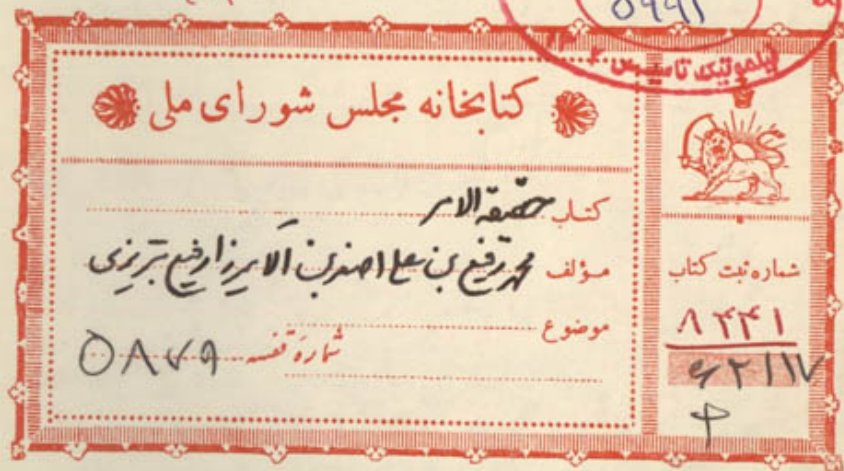 ۵۹۹۱
فیلموتیک تاسیس ۲
کتابخانه مجلس شورای ملی
کتاب حقیقة الامر
مؤلف محمد رفیع بن علی اصغر بن الامیرزا رفیع تبریزی
موضوع
شماره قفسه ۵۸۷۹
شماره ثبت کتاب
۸۴۴۱